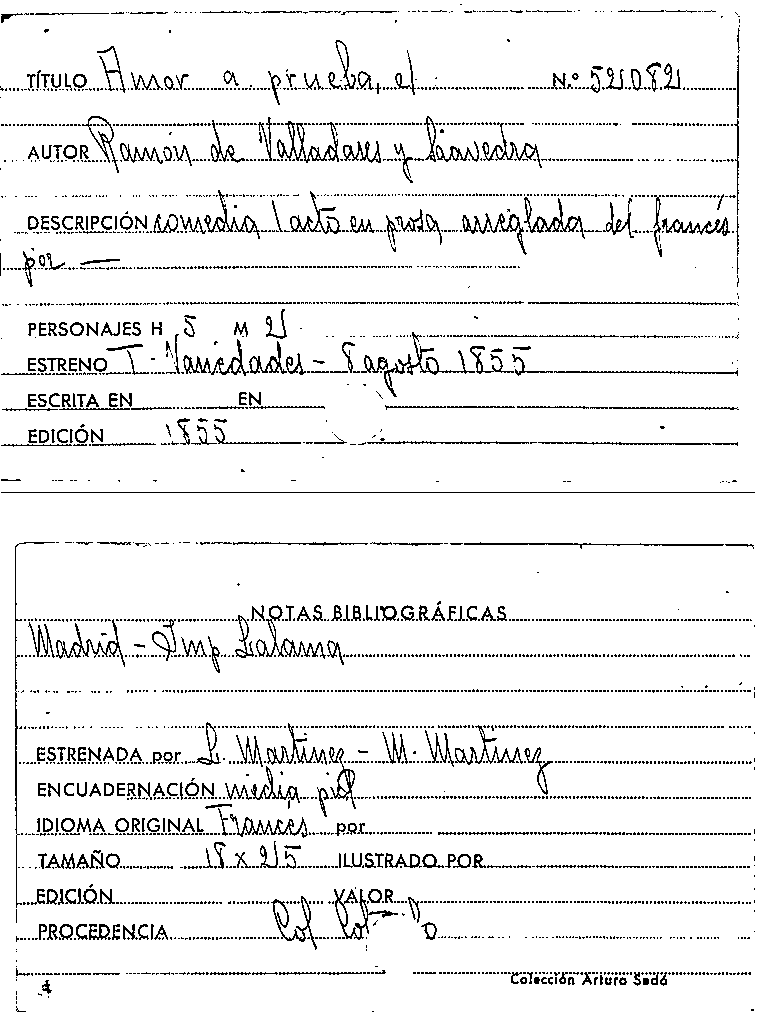 TÍTULO Amor a prueba, el N.º 52082
AUTOR Ramón de Valladares y Saavedra
DESCRIPCIÓN comedia 1 acto en prosa arreglada del francés
por —
PERSONAJES H 5 M 2
ESTRENO T. Variedades - 8 agosto 1855
ESCRITA EN EN
EDICIÓN 1855
NOTAS BIBLIOGRÁFICAS
Madrid - Imp Lalama
ESTRENADA por L. Martinez - M. Martinez
ENCUADERNACIÓN media piel
IDIOMA ORIGINAL Francés por
TAMAÑO 18 x 25 ILUSTRADO POR
EDICIÓN VALOR
PROCEDENCIA Col
4 Colección Arturo Sedó